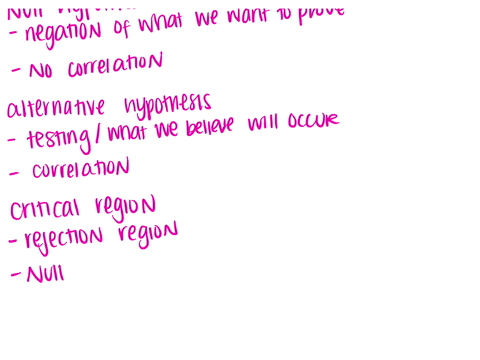 Null
- negation of what we want to prove
- No correlation
alternative hypothesis
- testing / what we believe will occur
- correlation
critical region
- rejection region
- Null